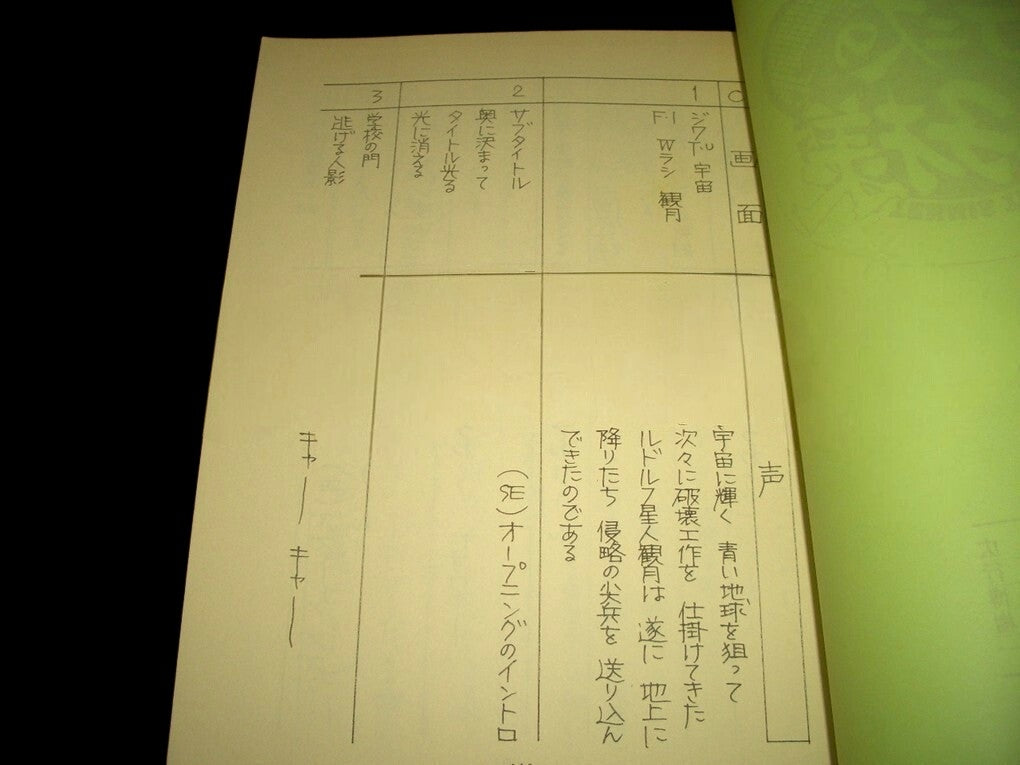 画面
声
1
ジワT.U 宇宙
F・I Wラシ 観月
宇宙に輝く 青い地球を狙って
次々に破壊工作を 仕掛けてきた
ルドルフ星人観月は 遂に 地上に
降りたち 侵略の尖兵を 送り込ん
できたのである
2
サブタイトル
奥に決まって
タイトル光る
光に消える
(SE)オープニングのイントロ
3
学校の門
逃げる人影
キャー キャー